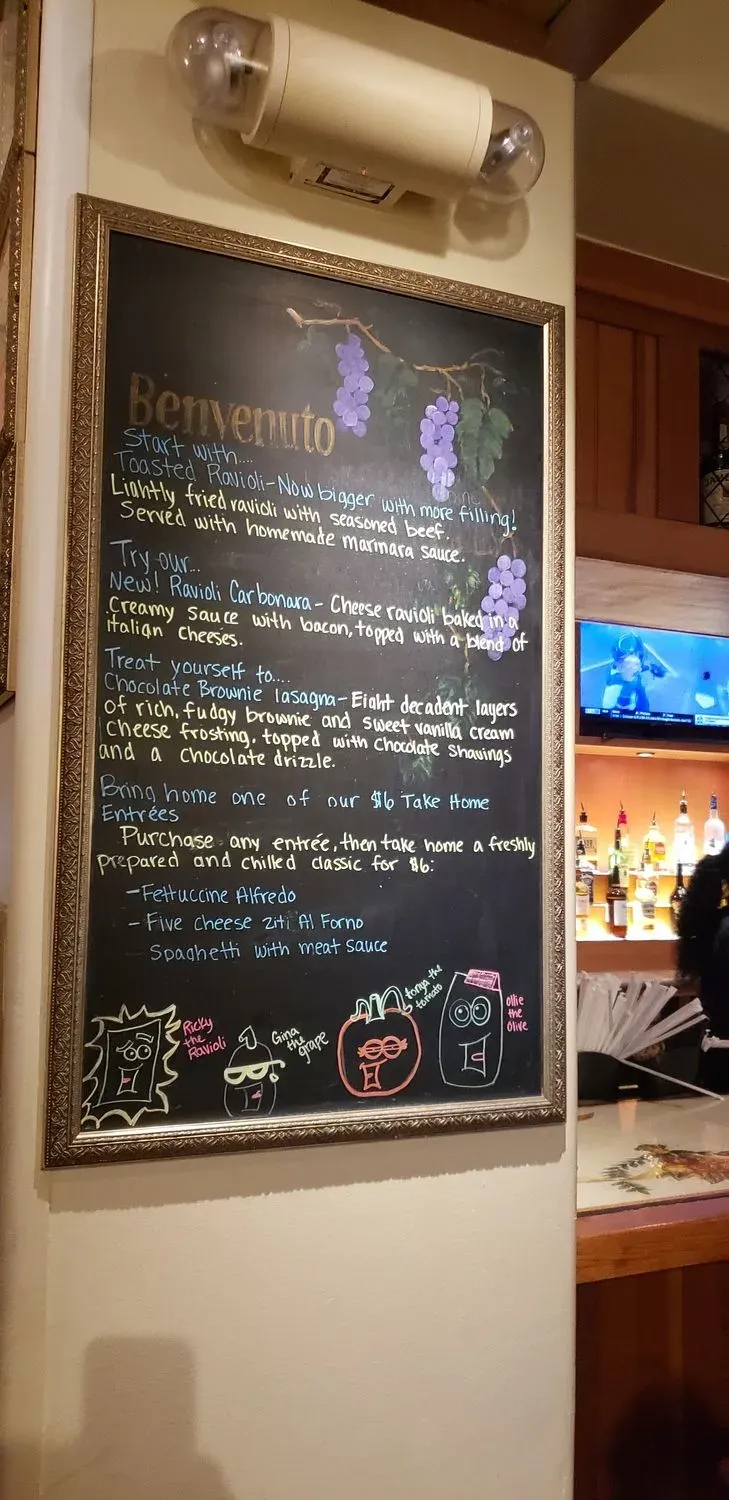 Benvenuto
Start with....
Toasted Ravioli-Now bigger with more filling!
Lightly fried ravioli with seasoned beef.
Served with homemade marinara sauce.
Try our...
New! Ravioli Carbonara- Cheese ravioli baked in a
Creamy sauce with bacon, topped with a blend of
italian cheeses.
Treat yourself to....
Chocolate Brownie lasagna- Eight decadent layers
of rich, fudgy brownie and sweet vanilla cream
cheese frosting, topped with chocolate shavings
and a chocolate drizzle.
Bring home one of our $6 Take Home
Entrées
Purchase any entrée, then take home a freshly
prepared and chilled classic for $6:
-Fettuccine Alfredo
- Five cheese ziti Al Forno
Spaghetti with meat sauce
Ricky
the
Ravioli
Gina
the
grape
tonya the
tomato
ollie
the
olive